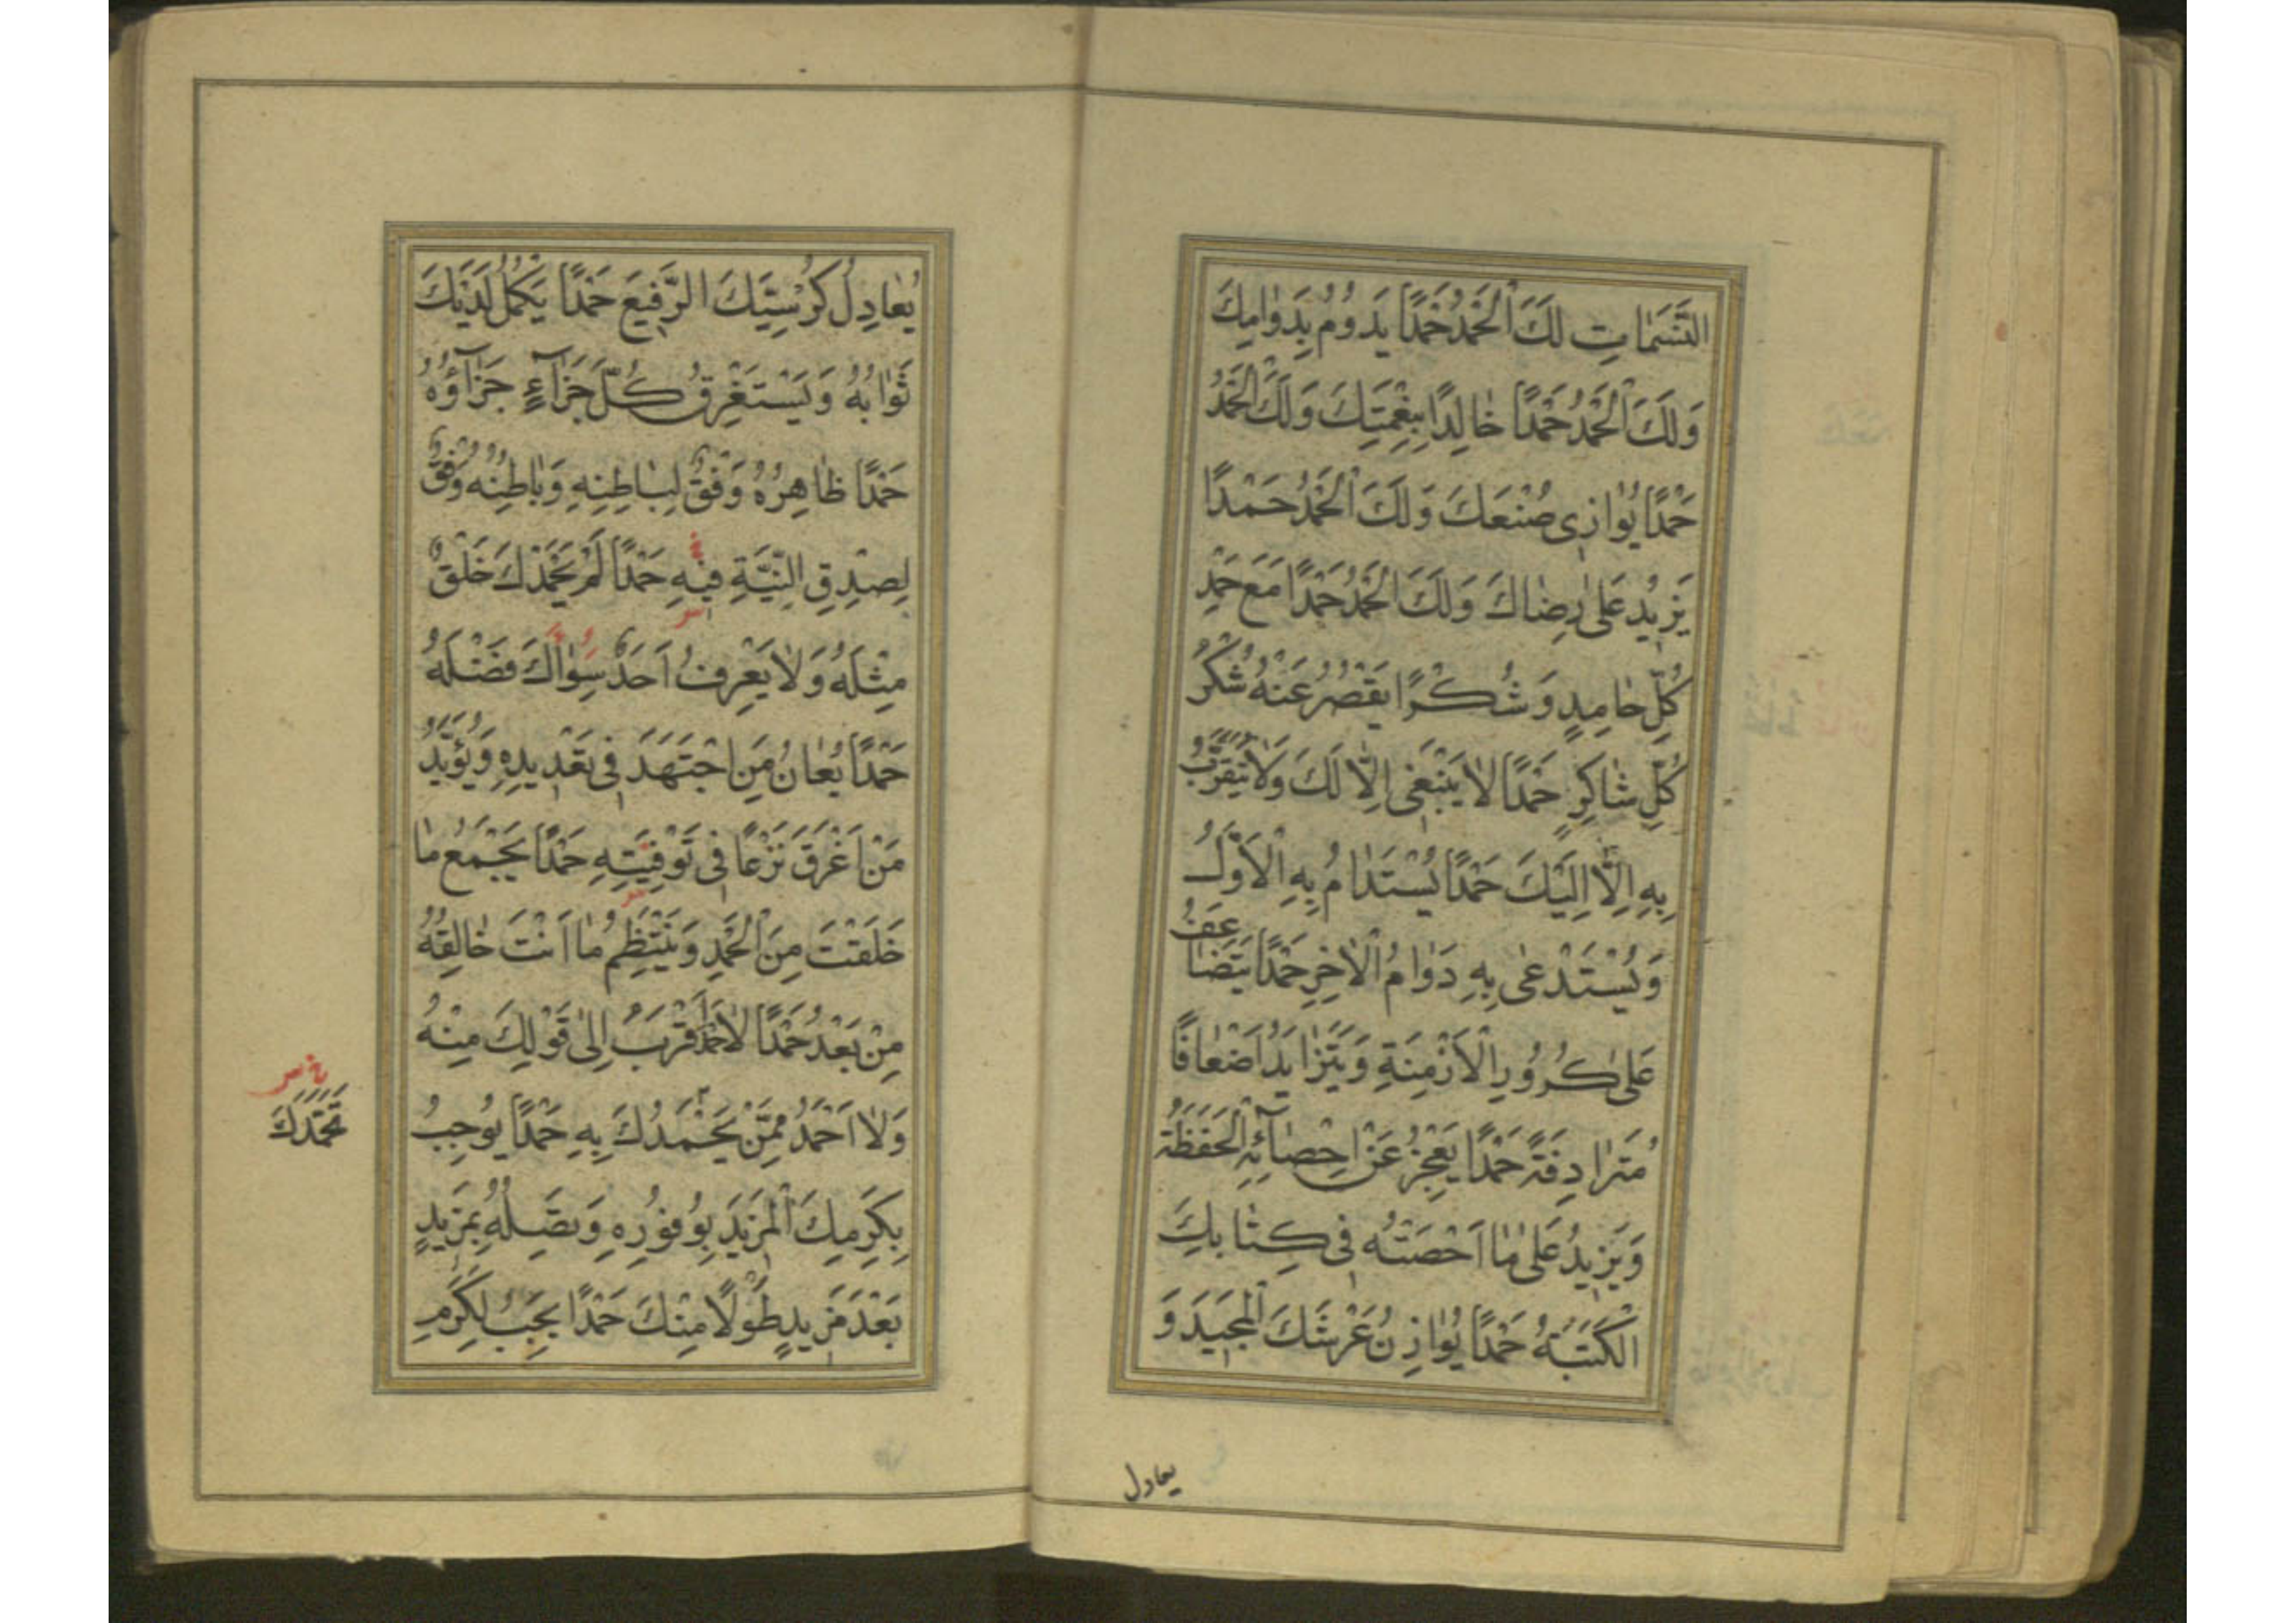 النَّسَمَاتِ لَكَ الْحَمْدُ حَمْدًا يَدُومُ بِدَوَامِكَ
وَلَكَ الْحَمْدُ حَمْدًا خَالِدًا بِنِعْمَتِكَ وَلَكَ الْحَمْدُ
حَمْدًا يُوَازِى صُنْعَكَ وَلَكَ الْحَمْدُ حَمْدًا
يَزِيدُ عَلَى رِضَاكَ وَلَكَ الْحَمْدُ حَمْدًا مَعَ حَمْدِ
كُلِّ حَامِدٍ وَشُكْرًا يَقْصُرُ عَنْهُ شُكْرُ
كُلِّ شَاكِرٍ حَمْدًا لَا يَنْبَغِى اِلَّا لَكَ وَلَا يُتَقَرَّبُ
بِهِ اِلَّا اِلَيْكَ حَمْدًا يُسْتَدَامُ بِهِ الْاَوَّلُ
وَيُسْتَدْعَى بِهِ دَوَامُ الْاٰخِرِ حَمْدًا يَتَضَاعَفُ
عَلَى كُرُورِ الْاَزْمِنَةِ وَيَتَزَايَدُ اَضْعَافًا
مُتَرَادِفَةً حَمْدًا يَعْجِزُ عَنْ اِحْصَآئِهِ الْحَفَظَةُ
وَيَزِيدُ عَلَى مَا اَحْصَتْهُ فِى كِتَابِكَ
الْكَتَبَةُ حَمْدًا يُوَازِنُ عَرْشَكَ الْمَجِيدَ وَ
يعادل
يُعَادِلُ كُرْسِيَّكَ الرَّفِيعَ حَمْدًا يَكْمُلُ لَدَيْكَ
ثَوَابُهُ وَيَسْتَغْرِقُ كُلَّ جَزَآءٍ جَزَآؤُهُ
حَمْدًا ظَاهِرُهُ وَفْقٌ لِبَاطِنِهِ وَبَاطِنُهُ وَفْقٌ
لِصِدْقِ النِّيَّةِ فِيهِ حَمْدًا لَمْ يَحْمَدْكَ خَلْقٌ
مِثْلَهُ وَلَا يَعْرِفُ اَحَدٌ سِوَاكَ فَضْلَهُ
حَمْدًا يُعَانُ مَنِ اجْتَهَدَ فِى تَعْدِيدِهِ وَيُؤَيَّدُ
مَنْ اَغْرَقَ نَزْعًا فِى تَوْفِيَتِهِ حَمْدًا يَجْمَعُ مَا
خَلَقْتَ مِنَ الْحَمْدِ وَيَنْتَظِمُ مَا اَنْتَ خَالِقُهُ
مِنْ بَعْدُ حَمْدًا لَا حَمْدَ اَقْرَبُ اِلَى قَوْلِكَ مِنْهُ
وَلَا اَحْمَدُ مِمَّنْ يَحْمَدُكَ بِهِ حَمْدًا يُوجِبُ
بِكَرَمِكَ الْمَزِيدَ بِوُفُورِهِ وَتَصِلُهُ بِمَزِيدٍ
بَعْدَ مَزِيدٍ طَوْلًا مِنْكَ حَمْدًا يَجِبُ لِكَرَمِ